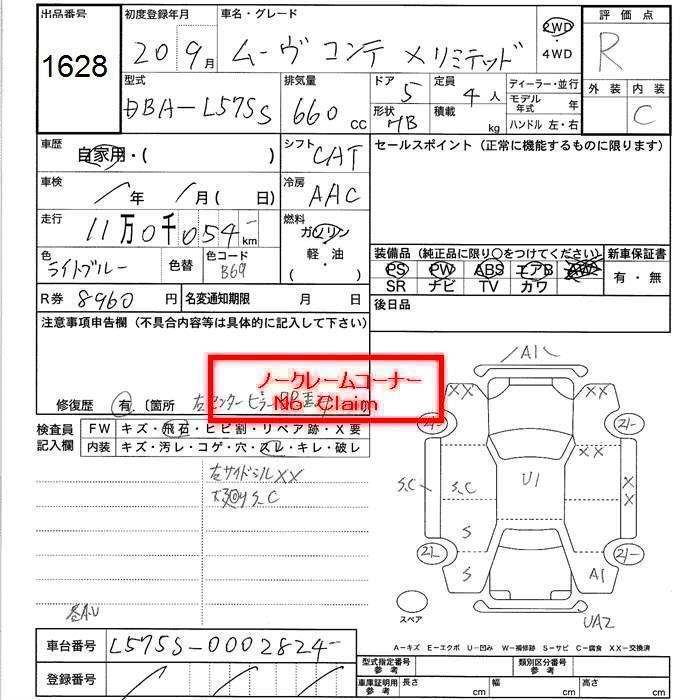 出品番号 初度登録年月 車名・グレード 評価点
1628 20 9月 ムーヴ コンテ Xリミテッド 2WD・4WD R
型式 排気量 ドア 定員 ディーラー・並行 外装 内装
DBA-L575S 660 cc 5 4人 モデル年式 年 C
形状 HB 積載 kg ハンドル 左・右
車歴 自家用・( ) シフト CAT セールスポイント(正常に機能するものに限ります)
車検 / 年 / 月( 日) 冷房 AAC
走行 11万0千054km 燃料 ガソリン 軽・油 ( )
色 ライトブルー 色替 色コード B69
装備品(純正品に限り○をつけてください) 新車保証書
PS PW ABS エアB AW 有・無
SR ナビ TV カワ
R券 8960円 名変通知期限 月 日 後日品
注意事項申告欄(不具合内容等は具体的に記入して下さい)
ノークレームコーナー
No Claim
修復歴 有 〔箇所 右センターピラー
検査員記入欄 FW キズ・飛石・ヒビ割・リペア跡・X要
内装 キズ・汚レ・コゲ・穴・スレ・キレ・破レ
右サイドシルXX
S、C
各A・U
A1
XX XX
2 2
XX
S、C S、C U1 XX
S
2 2
S A1
スペア UA2
A－キズ E－エクボ U－凹み W－補修跡 S－サビ C－腐食 XX－交換済
車台番号 L575S-0002824
登録番号
型式指定番号 参考 類別区分番号 参考
車庫証明用 参考 長さ cm 幅 cm 高さ cm